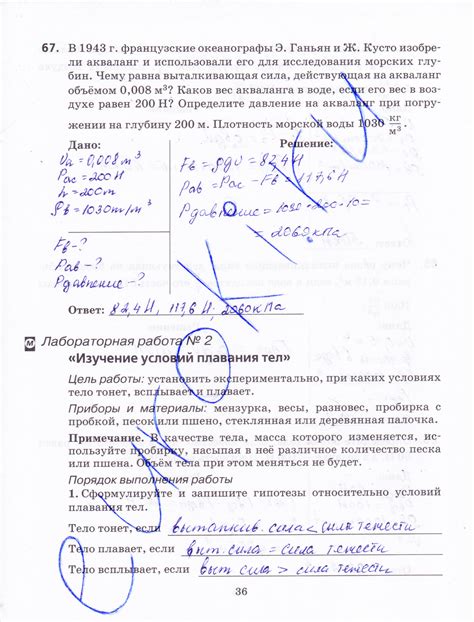 67. В 1943 г. французские океанографы Э. Ганьян и Ж. Кусто изобре-
ли акваланг и использовали его для исследования морских глу-
бин. Чему равна выталкивающая сила, действующая на акваланг
объёмом 0,008 м³? Каков вес акваланга в воде, если его вес в воз-
духе равен 200 Н? Определите давление на акваланг при погру-
жении на глубину 200 м. Плотность морской воды 1030 кг/м³.
Дано: Решение:
Vа = 0,008 м³ Fв = ρgv = 82,4 Н
Рас = 200 Н Рав = Рас - Fв = 117,6 Н
h = 200 м Рдавление = 1030·200·10 =
ρв = 1030 т/м³ = 2060 кПа
Fв - ?
Рав - ?
Рдавление - ?
Ответ: 82,4 Н, 117,6 Н, 2060 кПа
М Лабораторная работа № 2
«Изучение условий плавания тел»
Цель работы: установить экспериментально, при каких условиях
тело тонет, всплывает и плавает.
Приборы и материалы: мензурка, весы, разновес, пробирка с
пробкой, песок или пшено, стеклянная или деревянная палочка.
Примечание. В качестве тела, масса которого изменяется, ис-
пользуйте пробирку, насыпая в неё различное количество песка
или пшена. Объём тела при этом меняться не будет.
Порядок выполнения работы
1. Сформулируйте и запишите гипотезы относительно условий
плавания тел.
Тело тонет, если выталкив. сила < сила тяжести
Тело плавает, если выт. сила = сила тяжести
Тело всплывает, если выт сила > сила тежести
36